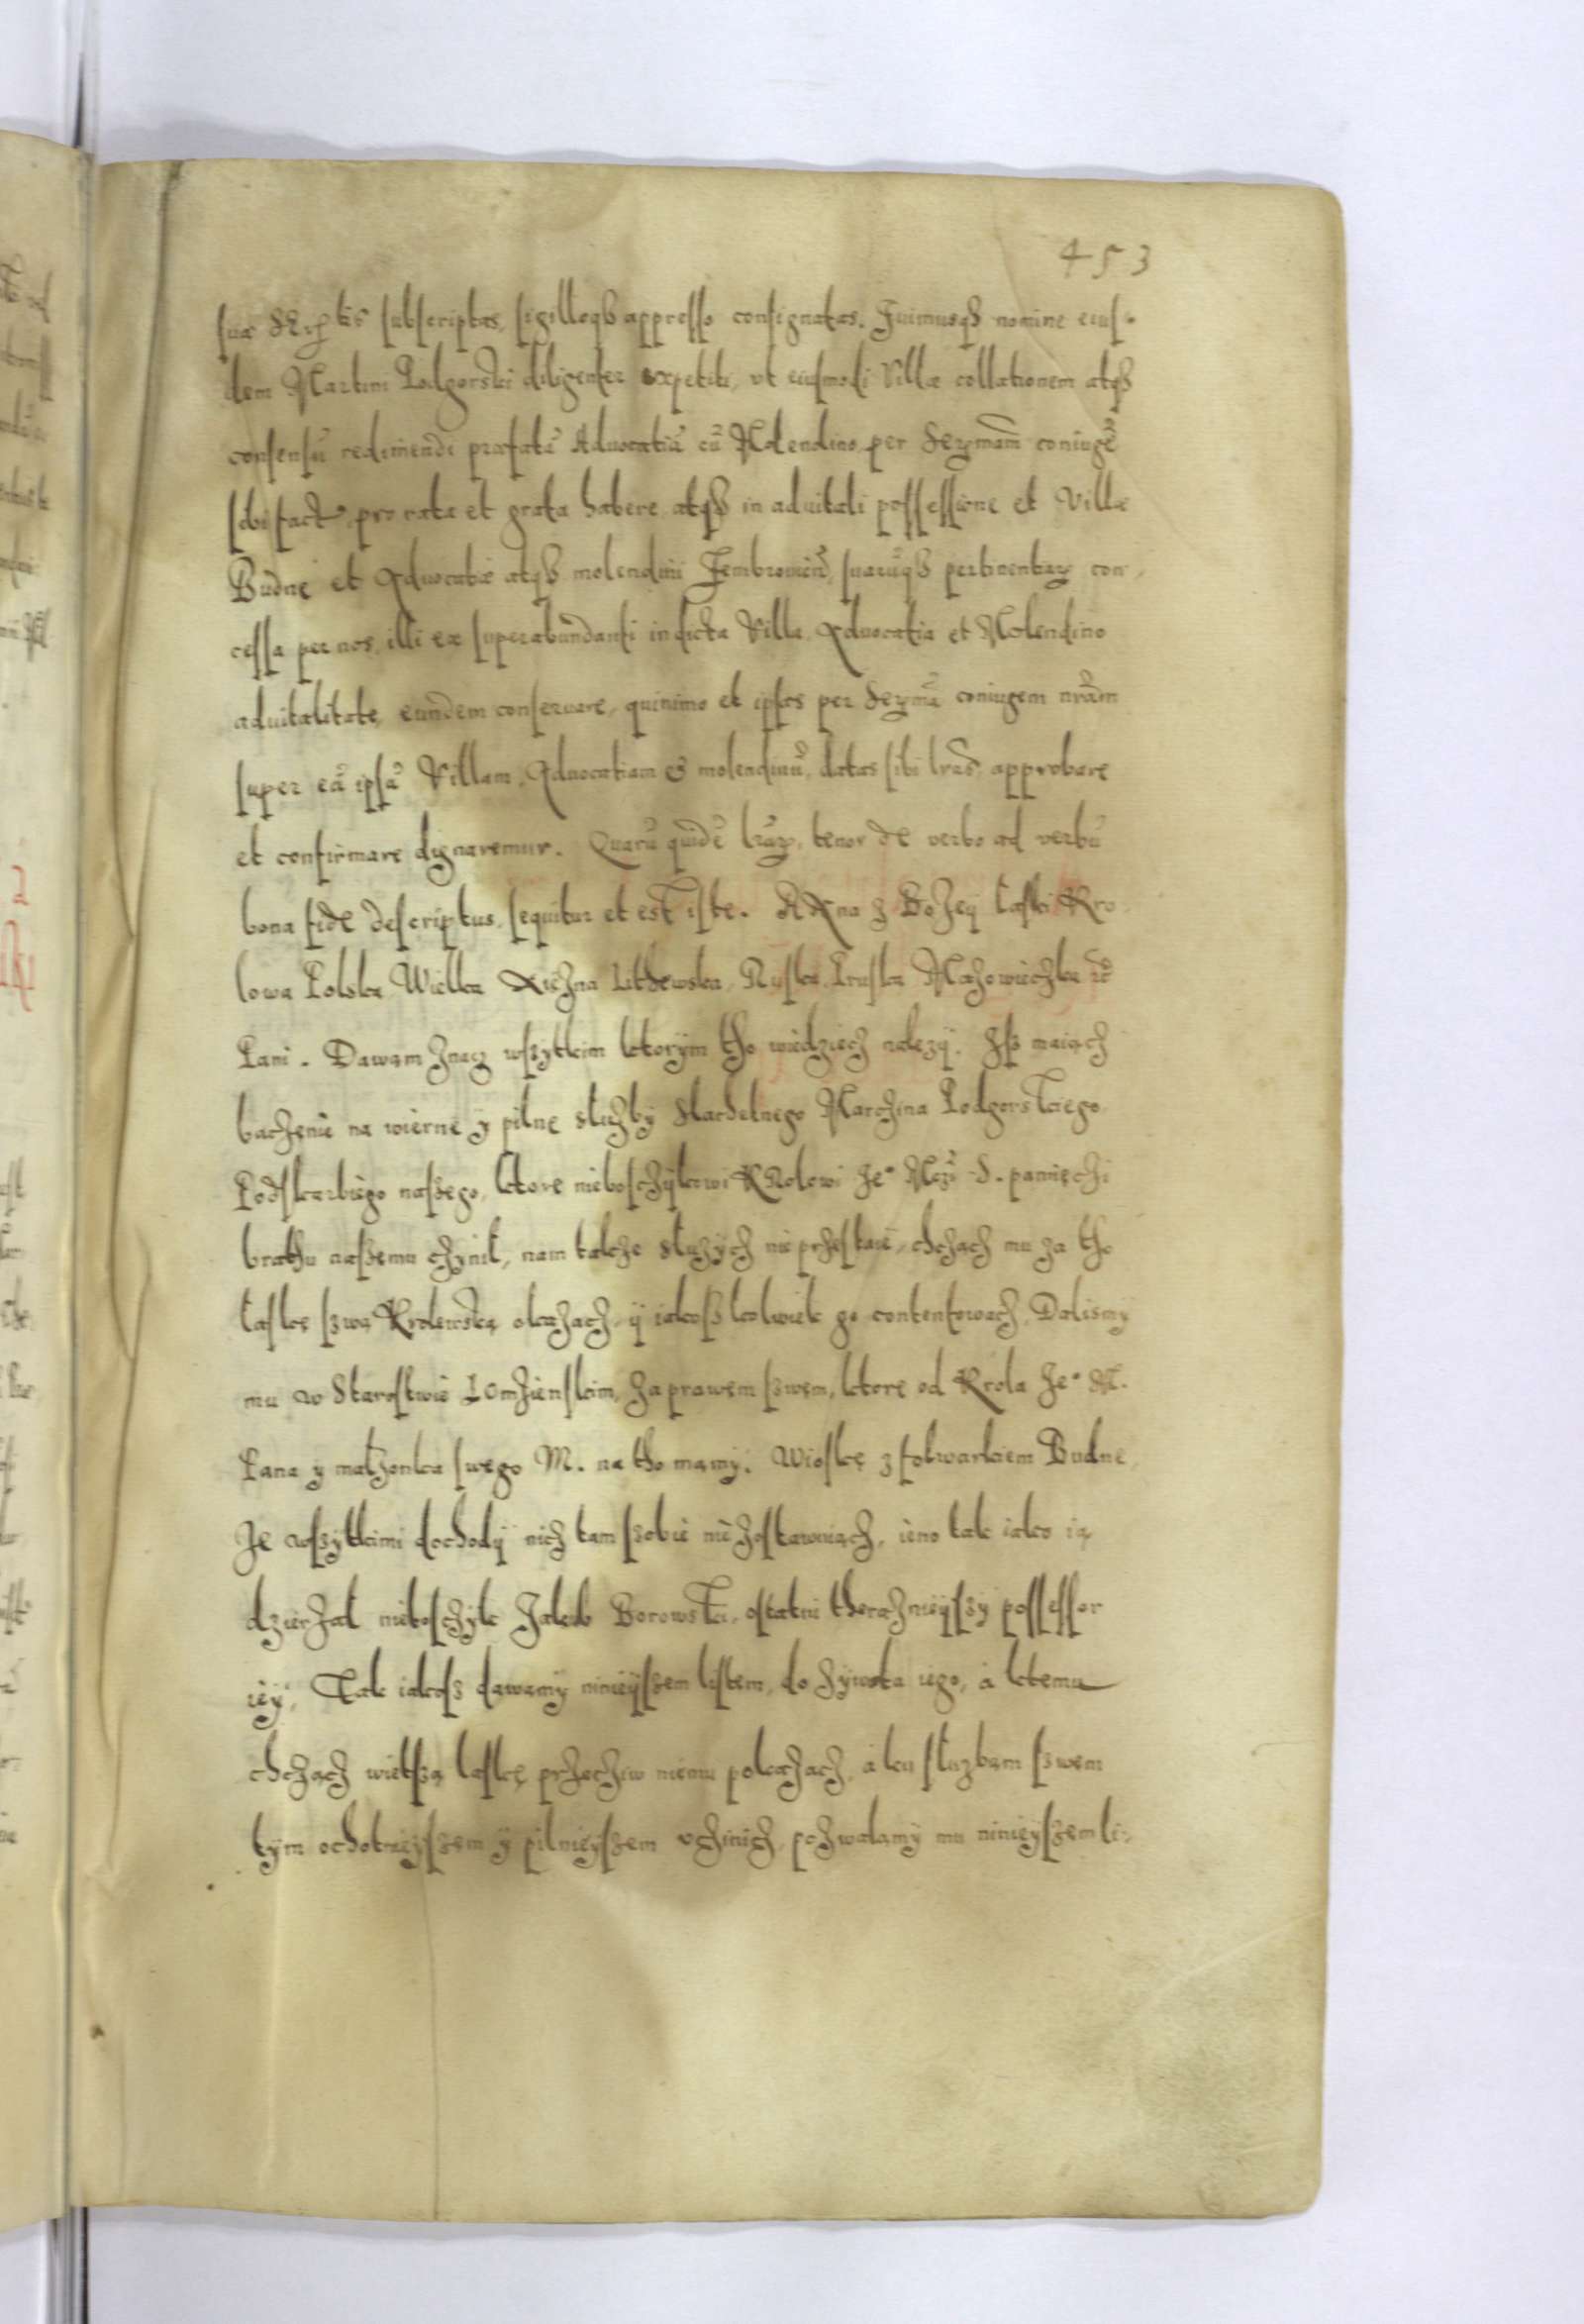 453
suæ subscriptas, sigilloqß appresso consignatas. Fuimusqß nomine eius-
dem Martini Podgorski diligenter expetiti, vt eiusmodi Villæ collationem atqß
consensũ redimendi præfatã Advocatiã cũ Molendino per Serzmam coniugẽ
sibi fact pro rata et grata habere atqß in aduitali possessione et Villæ
Budne et Aduocatiæ atqß molendini suarũqß pertinentarz con-
cessa per nos, illi ex superabundanti in dicta Villa, Aduocatia et Molendino
aduitalitate, eundem conseruare, quinimo et ipsas per Serzmã coniugem nrãm
super eã ipsã Villam, Aduocatiam & molendinũ, datas sibi lras, approbare
et confirmare dignaremur. Quarũ quidẽ lrarz, tenor de verbo ad verbũ
bona fide descriptus, sequitur et est iste. Anna z Bozey łaski Kro
lowa Polska Wielka Xiezna Lithewska, Ruska, Pruska Mazowieczka etc
Pani. Dawam znacz wszytkim ktorym tho wiedziecz należy. Isz maiącz
baczenie na wierne y pilne służby Slachetnego Marczina Podgorskiego
Podskarbiego naszego, ktore nieboszczykowi Krolowi Je° Mczi S. pamięczi
brathu naszemu czynił, nam takze służycz nie przestaie, chcząc mu za tho
łaskę szwą Krolewską okazacz, y iakosz kolwiek go contentowacz, Dalismy
mu w Starostwie Lomzienskim, za prawem szwem, ktore od Krola Je° M.
Pana y małżonka swego M. na tho mamy. Wioskę z folwarkiem Budne,
Ze wszytkimi dochody nicz tam szobie nie zostawuiącz, ieno tak iako ią
dzierżał nieboszczyk Jakub Borowski, ostatni therazniejszy possessor
iey, Tak iakosz dawamy ninieyszem listem, do żywota iego, a ktemu
chcząc wietszą laskę przecziw niemu pokazacz, a ku służbam szwem
tym ochotnieyszem y pilnieyszem vczinicz, pozwalamy mu ninieyszem li-